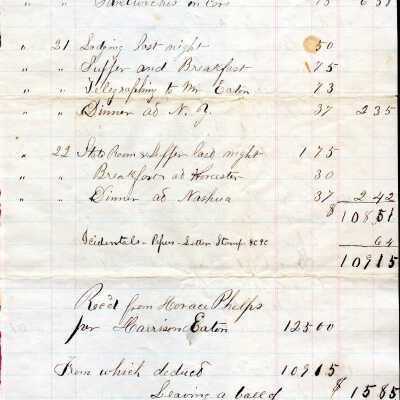 " " Sandwiches on Cars 15 6 51
" " 21 Lodging last night 50
" " Supper and Breakfast 75
" " Telegraphing to Mr Eaton 73
" " Dinner at N. Y. 37 2 35
" " 22 State Room & Supper last night 1 75
" " Breakfast at Worcester 30
" " Dinner at Nashua 37 2 42
$ 108 51
Icidentals - Papers - Letter Stamp &c &c 64
109 15
Rec'd from Horace Phelps
per Harrison Eaton 125 00
From which deduct 109 15
Leaving a ball of $ 15 85